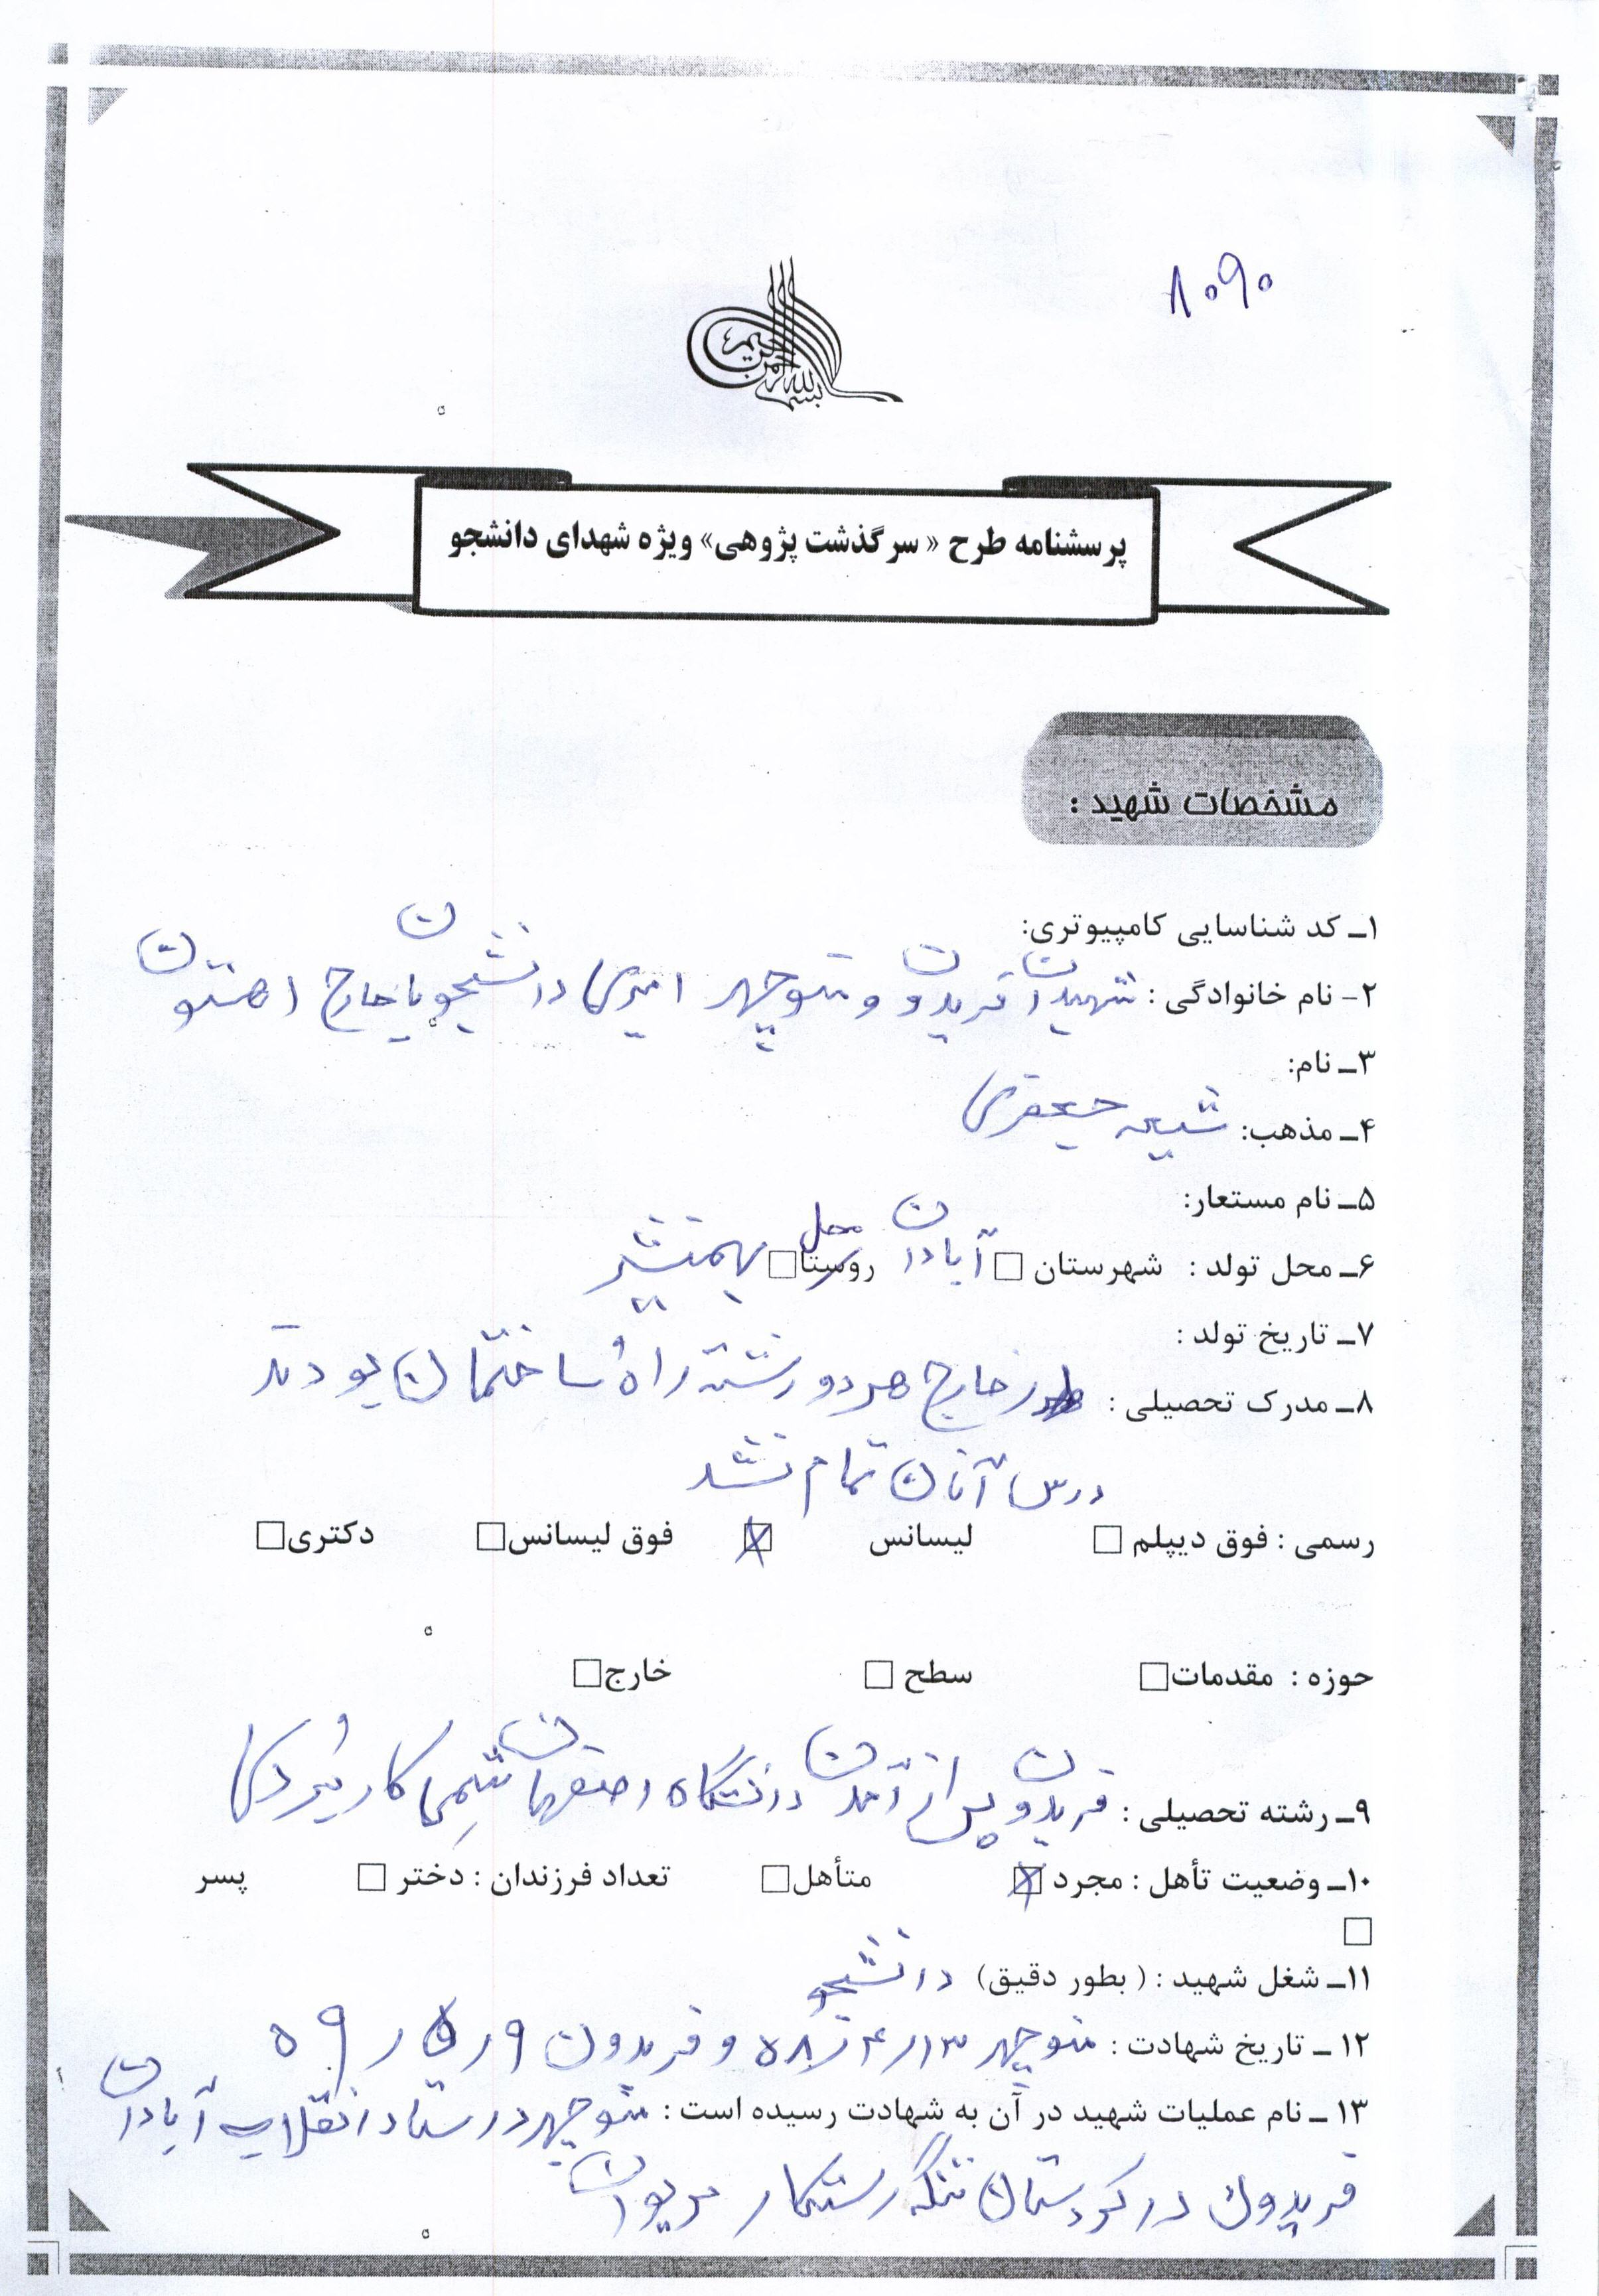 ۸۰۹۰
بسم الله الرحمن الرحیم
پرسشنامه طرح « سرگذشت پژوهی» ویژه شهدای دانشجو
مشخصات شهید :
۱ـ کد شناسایی کامپیوتری:
۲- نام خانوادگی : شهیدان فریدون و منوچهر امیری دانشجویان خارج
۳ـ نام:
۴ـ مذهب: شیعه جعفری
۵ـ نام مستعار:
۶ـ محل تولد : شهرستان □ آبادان روستا□ محل بهمنشیر
۷ـ تاریخ تولد :
۸ـ مدرک تحصیلی : در خارج هر دو رشته راه و ساختمان بودند
درس آنان تمام نشد
رسمی : فوق دیپلم □ لیسانس ☒ فوق لیسانس□ دکتری□
حوزه : مقدمات□ سطح □ خارج□
۹ـ رشته تحصیلی : فریدون پس از آمدن دانشگاه اصفهان شیمی کاربردی
۱۰ـ وضعیت تأهل : مجرد ☒ متأهل□ تعداد فرزندان : دختر □ پسر
□
۱۱ـ شغل شهید : ( بطور دقیق) دانشجو
۱۲ ـ تاریخ شهادت : منوچهر ۱۳ر۴ر۵۸ و فریدون ۹ر۵ر۵۹
۱۳ ـ نام عملیات شهید در آن به شهادت رسیده است : منوچهر در ستاد انقلاب آبادان
فریدون در کردستان تنگه رستگار مریوان